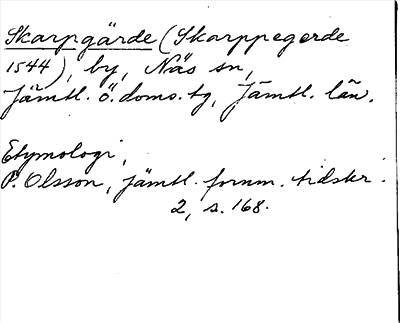 Skarpgärde (Skarppegerde
1544), by, Näs sn,
Jämtl. ö. doms. tg, Jämtl. län.
Etymologi,
P. Olsson, jämtl. fornm. tidskr.
2, s. 168.